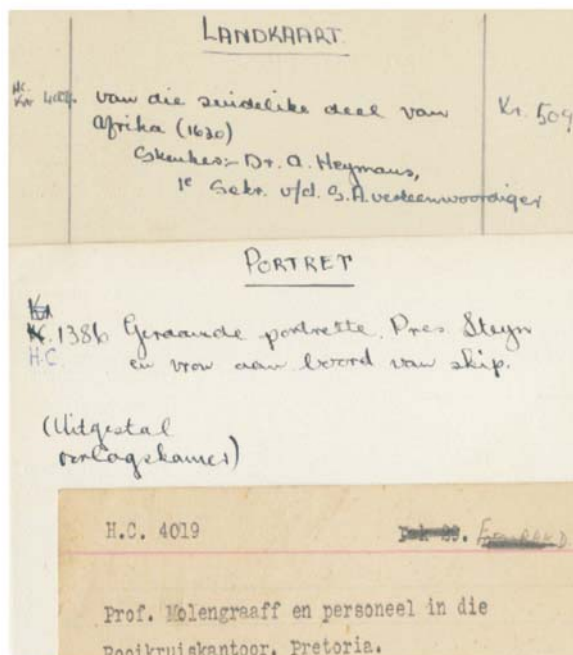 LANDKAART
H.C.
Kr. 509
van die suidelike deel van
Afrika (1630)
Skenker:- Dr. A. Heymans,
1e Sekr. v/d. S.A. verteenwoordiger
PORTRET
1386 Geraamde portrette, Pres. Steyn
H.C. en vrou aan boord van skip.
(Uitgestal
oorlogskamer)
H.C. 4019
Prof. Molengraaff en personeel in die
Rooikruiskantoor, Pretoria.